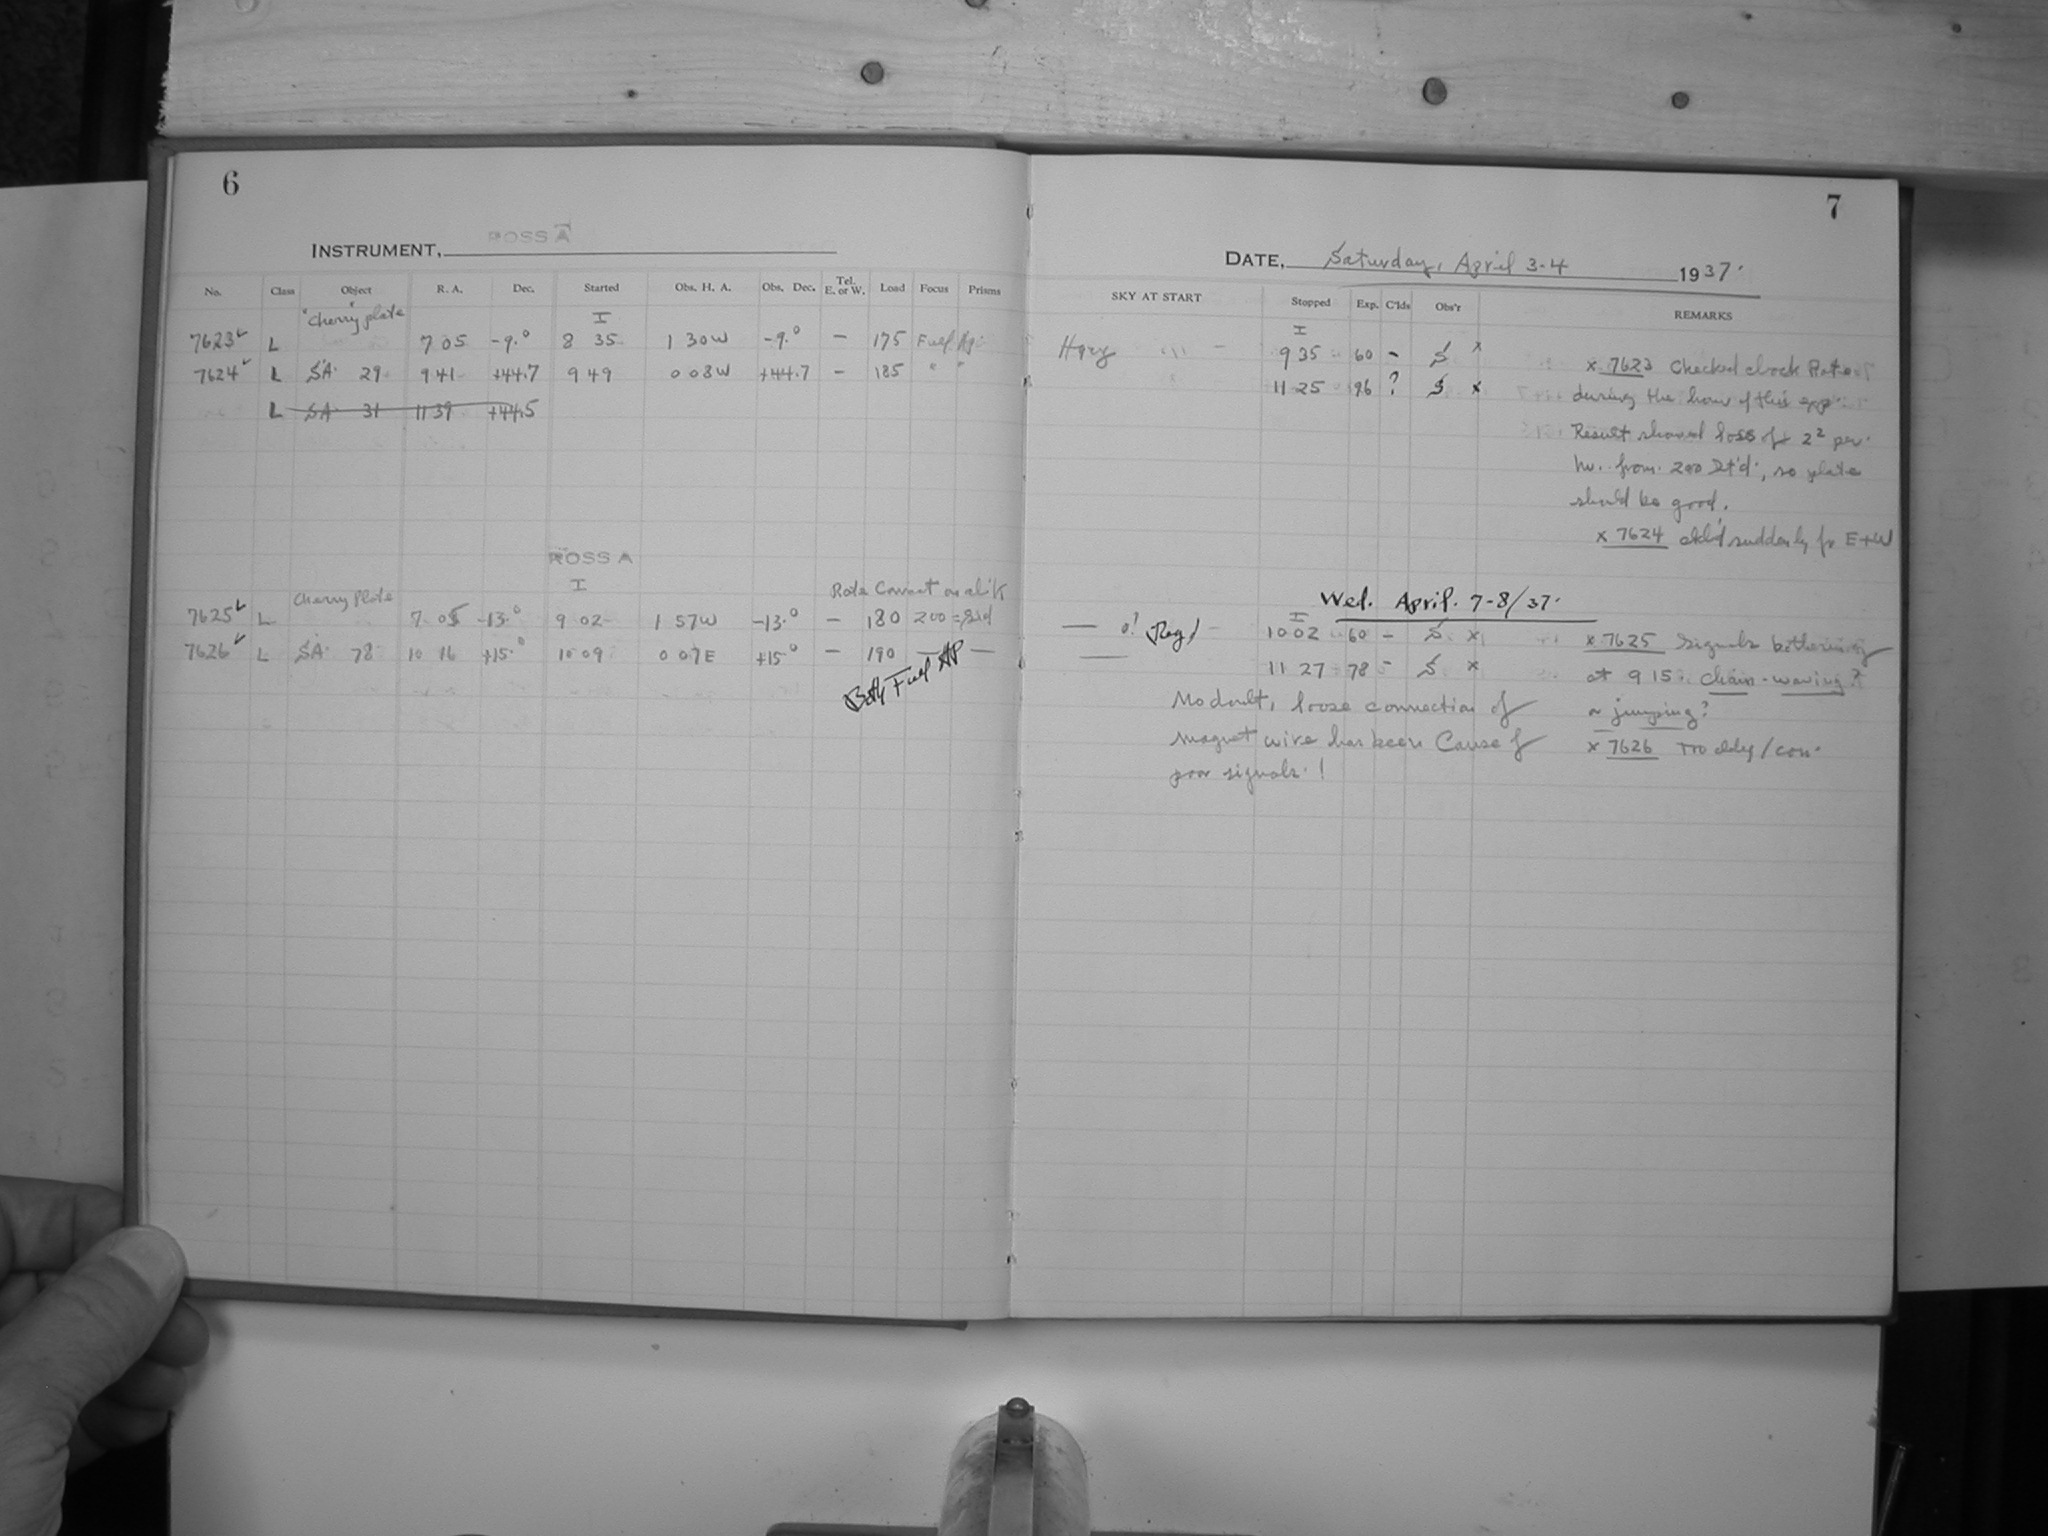 6
INSTRUMENT, ROSS A
No. Class Object R. A. Dec. Started Obs. H. A. Obs. Dec. Tel. E. or W. Load Focus Prisms
"Cherry plate" I
7623 L 7 05 -9.° 8 35 1 30W -9.° - 175 Full Ap.
7624 L SA 29 9 41 +44.7 9 49 0 08W +44.7 - 185 " "
L SA 31 11 39 +44.5
ROSS A
I
Cherry Plate Rate Correct on
7625 L 7 05 -13.° 9 02 1 57W -13.° - 180 200 = Std
7626 L SA 78 10 16 +15.° 10 09 0 07E +15° - 190 - -
Both Full AP
7
DATE, Saturday, April 3-4 1937.
SKY AT START Stopped Exp. C'lds Obs'r REMARKS
I
Hazy - 9 35 60 - S x
11 25 96 ? S x
x 7623 Checked clock Rate
during the hour of this exp.
Result showed loss of 2² per
hr. from 200 St'd, so plate
should be good.
x 7624 cld'd suddenly fr E+W
Wed. April. 7-8/37.
I
10 02 60 - S x
11 27 78 - S x
x 7625 Signals bothering
at 9 15. Chain-waving?
or jumping?
x 7626
No doubt, loose connection of
magnet wire has been Cause of
poor signals!